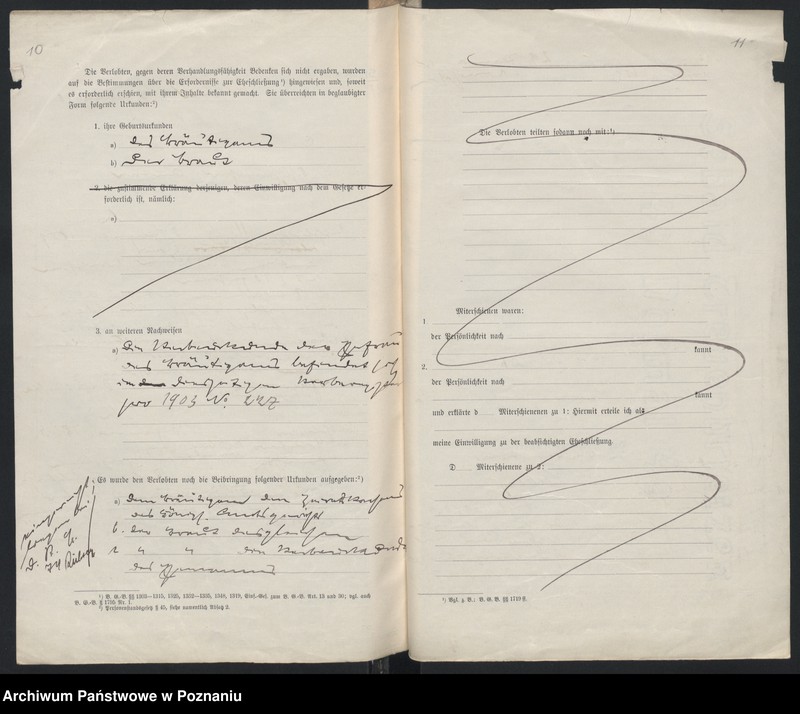 10
Die Verlobten, gegen deren Verhandlungsfähigkeit Bedenken sich nicht ergaben, wurden
auf die Bestimmungen über die Erfordernisse zur Eheschließung¹) hingewiesen und, soweit
es erforderlich erschien, mit ihrem Inhalte bekannt gemacht. Sie überreichten in beglaubigter
Form folgende Urkunden:²)
1. ihre Geburtsurkunden
a) des Bräutigams
b) der Braut
2. die zustimmende Erklärung derjenigen, deren Einwilligung nach dem Gesetze er-
forderlich ist, nämlich:
a)
3. an weiteren Nachweisen
a) Die Sterbeurkunde der Ehefrau
des Bräutigams befindet sich
im diesseitigen
pro 1903 No. 227
Es wurde den Verlobten noch die Beibringung folgender Urkunden aufgegeben:²)
a) dem Bräutigam den
des Königl. Amtsgerichts
b. der Braut desgleichen
c " " die Sterbeurkunde
des Ehemannes
¹) B. G.-B. §§ 1303—1315, 1325, 1322—1335, 1348, 1349, Einf.-Ges. zum B. G.-B. Art. 13 und 30; vgl. auch
B. G.-B. § 1705 Nr. 1.
²) Personenstandsgesetz § 45, siehe namentlich Absatz 2.
11
Die Verlobten teilten sodann noch mit:¹)
Miterschienen waren:
1
der Persönlichkeit nach
kannt
2.
der Persönlichkeit nach
kannt
und erklärte d Miterschienenen zu 1: Hiermit erteile ich als
meine Einwilligung zu der beabsichtigten Eheschließung.
D Miterschienene zu 2:
¹) Vgl. z. B.: B. G. B. §§ 1719 ff.
Archiwum Państwowe w Poznaniu